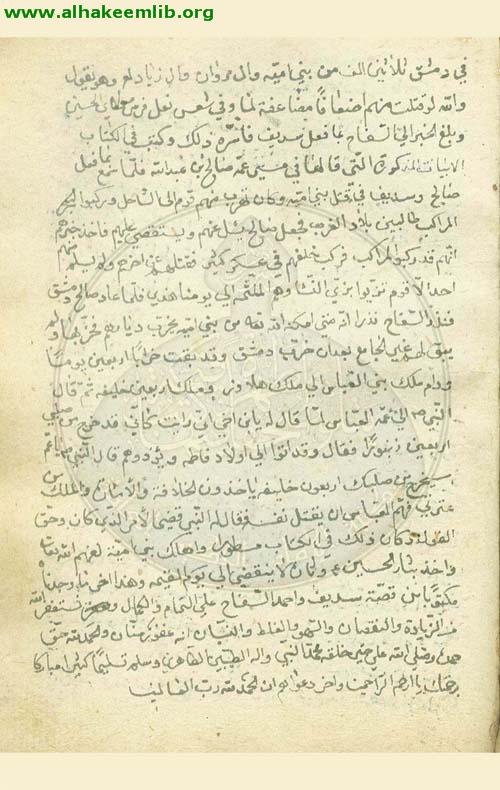 www.alhakeemlib.org
في دمشق ثلاثين الف من بني اميه وال مروان وال زياد لع وهو يقول
والله لو قتلت منهم اضعافا مضاعفة لما وفي شسع نعل فرس مولاي الحسين
وبلغ الخبر الى السفاح بما فعل سديف فاسره ذلك وكتب في الكتاب
الابيات المذكوره التي قالها في مسير عمه صالح بن عبدالله فلما سمع بما فعل
صالح وسديف في قتل بني اميه وكان تهرب منهم قوم الى الساحل وركبوا البحر
المراكب طالبين بلاد الغرب فجعل صالح يسئل عنهم ويستقصي عليهم فاخذ خبرهم
انهم قد ركبوا المراكب فركب خلفهم في عسكر كثير فقتلهم عن اخرهم ولم يسلم منهم
احد الا قوم تزيوا بزي النسا وهم الملثمه الى يومنا هذا فلما عاد صالح دمشق
فنذر السفاح نذرا انه متى امكنه الله تعه من بني اميه يخرب ديارهم فخربها ولم
يبق لهم غير الجامع بعد ان خرب دمشق وقد بقيت خرابا اربعين يوما
ودام ملك بني العباس الى ملك هلاون وملك اربعين خليفه ثم قال
النبي ص الى عمه العباس لما قال له يابن اخي اني رايت كاني قد خرج من صلبي
اربعين زنبورا فقال وقد اتوا الى اولاد فاطمه ويؤذوهم قال النبي ص ياعم
سيخرج من صلبك اربعون خليفه ياخذون الخلافة والامان والملك من
عترتي فهم العباس ان يقتل نفسه فقال له النبي قضي الامر الذي كان وحق
القول وكان ذلك في الكتاب مسطورا واهلك بني امية لعنهم الله تعا
واخذ بثار الحسين ع وثار لا ينقضي الى يوم القيمه وهذا اخر ما وجدنا
مكتوبا من قصة سديف واحمد السفاح على التمام والكمال ونستغفر الله
من الزيادة والنقصان والسهو والغلط والنسيان انه غفور منان والحمد لله حق
حمده وصلى الله على خير خلقه محمد النبي واله الطيبين الطاهرين وسلم تسليما كثيرا مباركا
برحمتك يا ارحم الراحمين واخر دعواهم ان الحمد لله رب العالمين